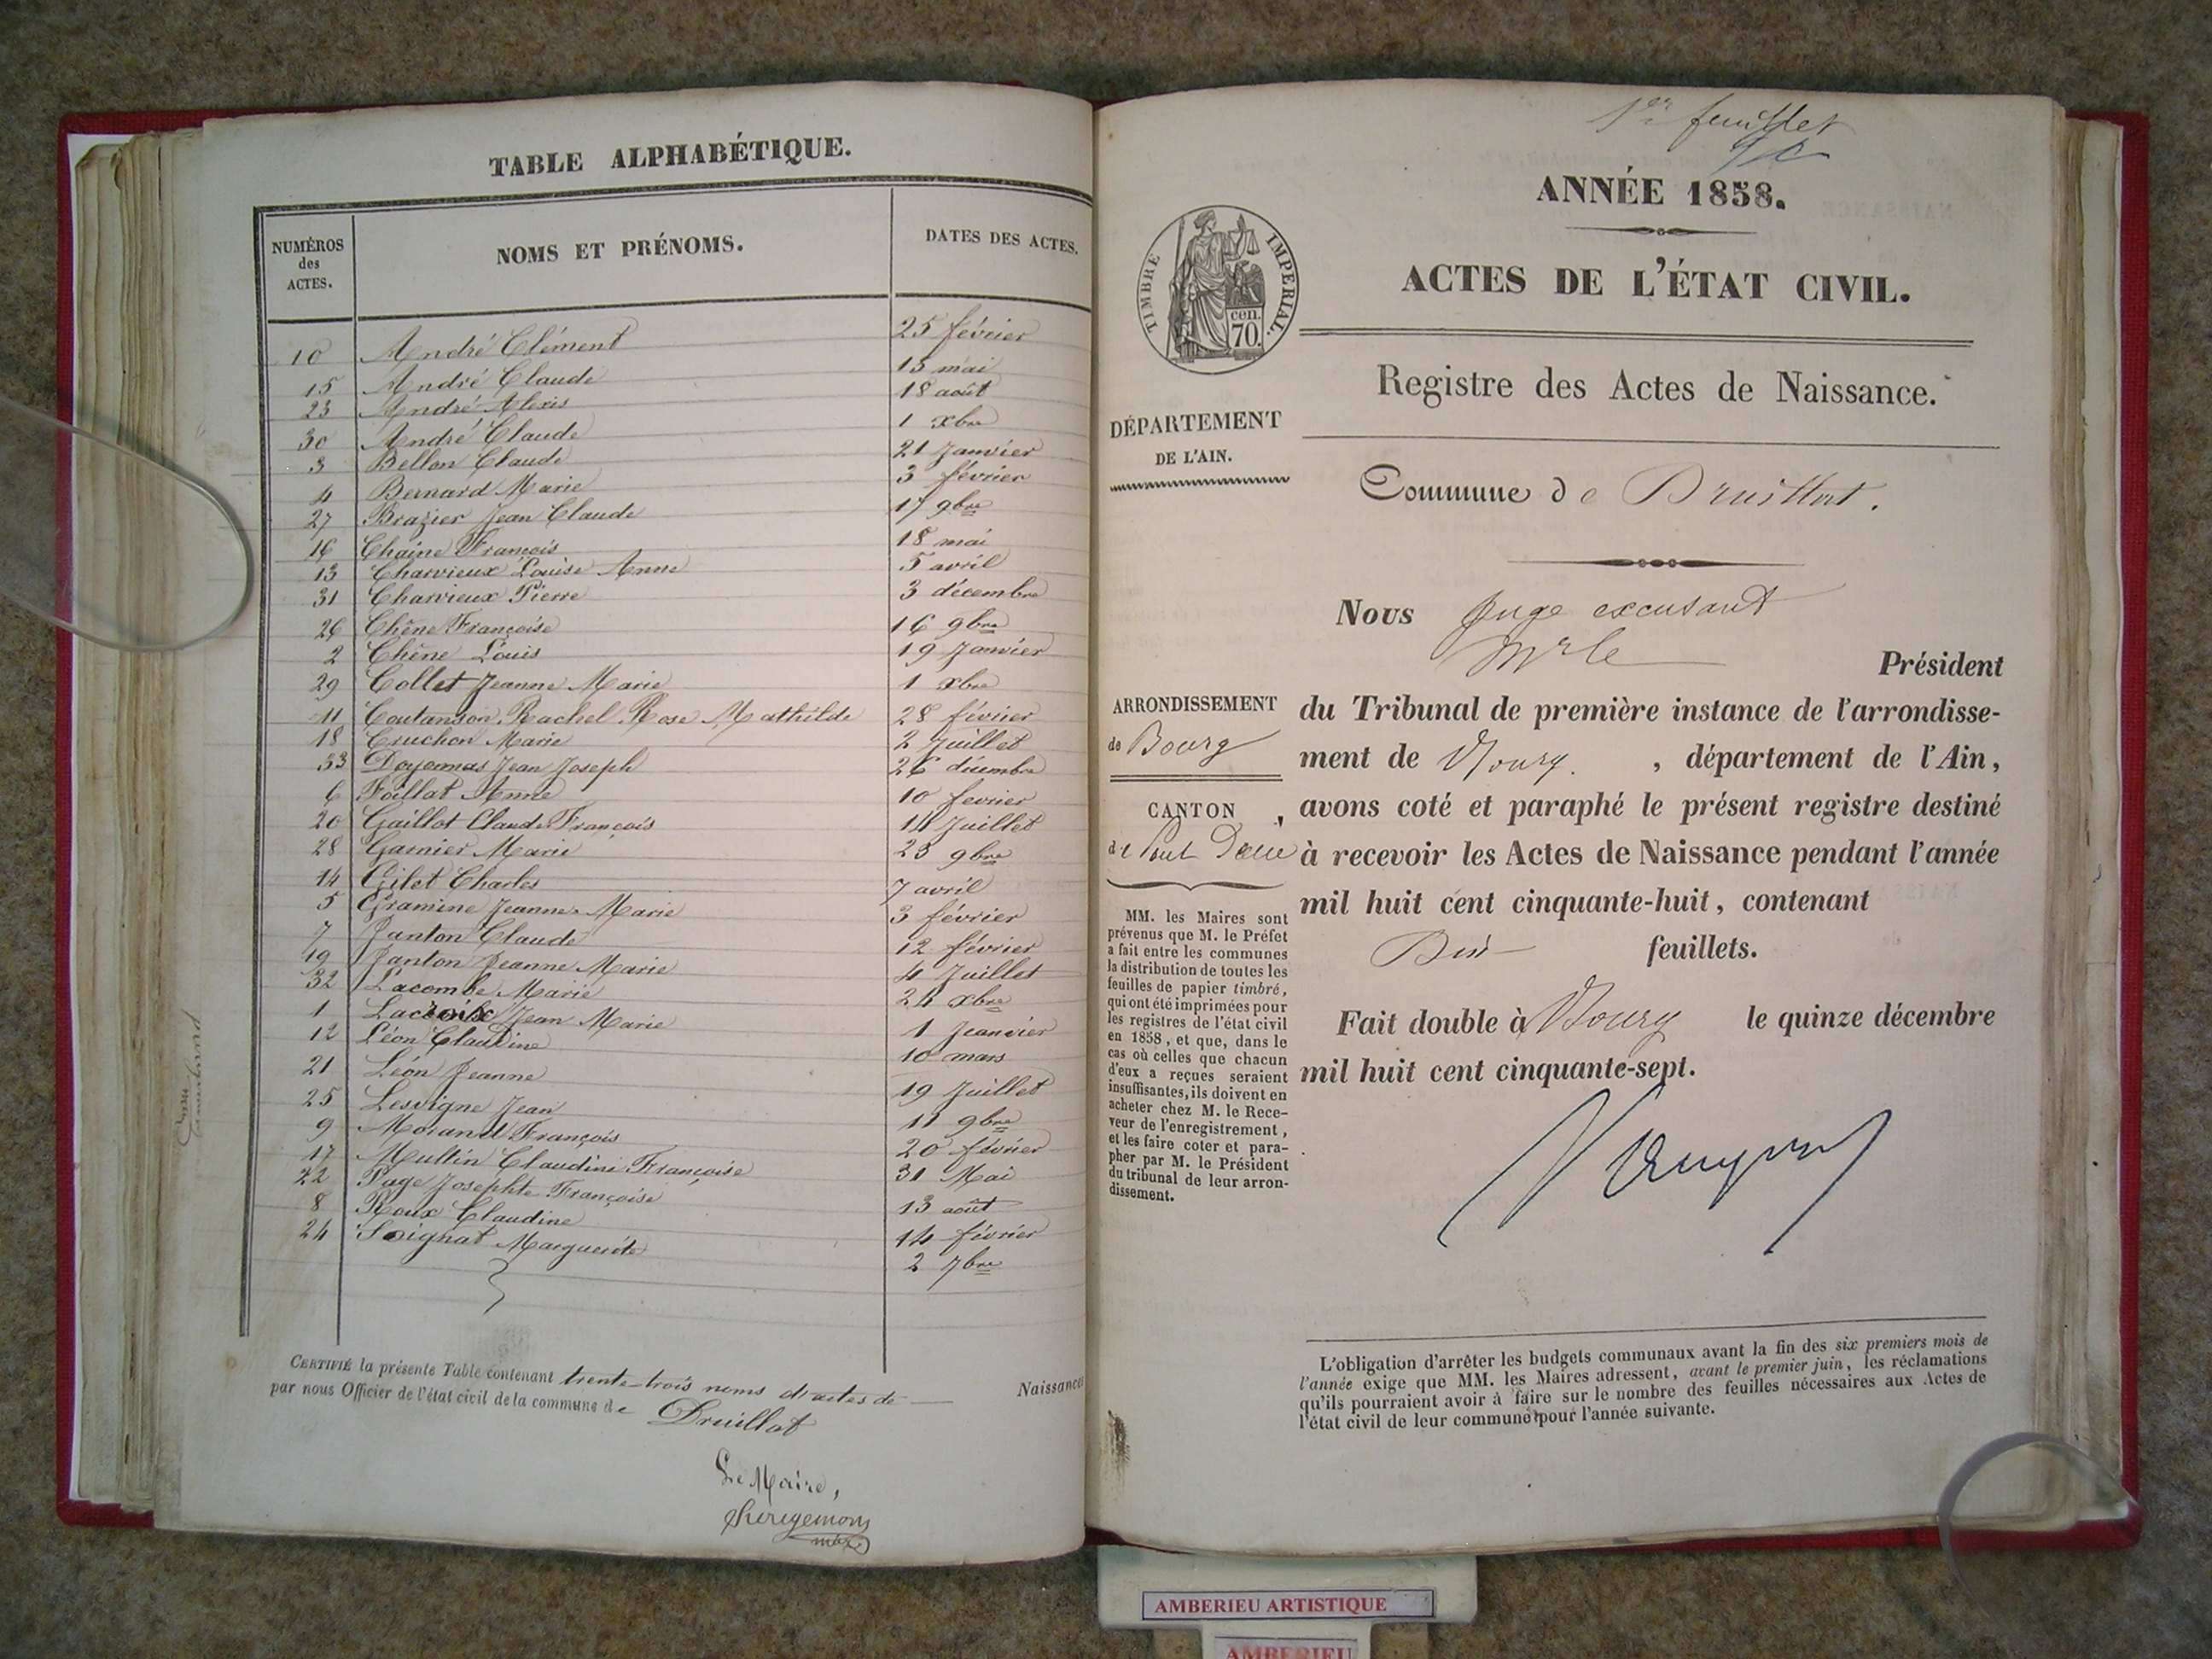 TABLE ALPHABÉTIQUE.
NUMÉROS des ACTES. NOMS ET PRÉNOMS. DATES DES ACTES.
10 André Clément 25 février
15 André Claude 15 mai
23 André Alexis 18 août
30 André Claude 1 xbre
3 Bellon Claude 21 Janvier
4 Bernard Marie 3 février
27 Brazier Jean Claude 17 9bre
16 Chaine François 18 mai
13 Charvieux Louise Anne 5 avril
31 Charvieux Pierre 3 décembre
26 Chêne Françoise 16 9bre
2 Chêne Louis 19 Janvier
29 Collet Jeanne Marie 1 xbre
11 Coutanson Rachel Rose Mathilde 28 février
18 Cruchon Marie 2 Juillet
33 Doyonnas Jean Joseph 26 décembre
6 Foillat Anne 10 fevrier
20 Gaillot Claude François 14 Juillet
28 Garnier Marie 23 9bre
14 Gilet Charles 7 avril
5 Gramene Jeanne Marie 3 février
7 Janton Claude 12 février
19 Janton Jeanne Marie 4 Juillet
32 Lacombe Marie 24 xbre
1 Lacroix Jean Marie 1 Jeanvier
12 Léon Claudine 10 mars
21 Léon Jeanne 19 Juillet
25 Lesvigne Jean 11 9bre
9 Morand François 20 février
17 Multin Claudine Françoise 31 Mai
22 Page Josephte Françoise 13 août
8 Roux Claudine 14 février
24 Soignat Marguerite 2 7bre
CERTIFIÉ la présente Table contenant trente-trois noms d'actes de Naissances
par nous Officier de l'état civil de la commune de Druillat
Le Maire,
maire
1er feuillet
ANNÉE 1858.
TIMBRE IMPÉRIAL.
cen.
70.
ACTES DE L'ÉTAT CIVIL.
Registre des Actes de Naissance.
DÉPARTEMENT
DE L'AIN.
Commune de Druillat.
Nous Juge excusant
Mr le
Président
ARRONDISSEMENT
de Bourg
du Tribunal de première instance de l'arrondisse-
ment de Bourg. , département de l'Ain,
CANTON
de Pont Dain
, avons coté et paraphé le présent registre destiné
à recevoir les Actes de Naissance pendant l'année
mil huit cent cinquante-huit, contenant
Dix feuillets.
MM. les Maires sont
prévenus que M. le Préfet
a fait entre les communes
la distribution de toutes les
feuilles de papier timbré,
qui ont été imprimées pour
les registres de l'état civil
en 1858, et que, dans le
cas où celles que chacun
d'eux a reçues seraient
insuffisantes, ils doivent en
acheter chez M. le Rece-
veur de l'enregistrement,
et les faire coter et para-
pher par M. le Président
du tribunal de leur arron-
dissement.
Fait double à Bourg le quinze décembre
mil huit cent cinquante-sept.
L'obligation d'arrêter les budgets communaux avant la fin des six premiers mois de
l'année exige que MM. les Maires adressent, avant le premier juin, les réclamations
qu'ils pourraient avoir à faire sur le nombre des feuilles nécessaires aux Actes de
l'état civil de leur commune pour l'année suivante.
AMBERIEU ARTISTIQUE
AMBERIEU